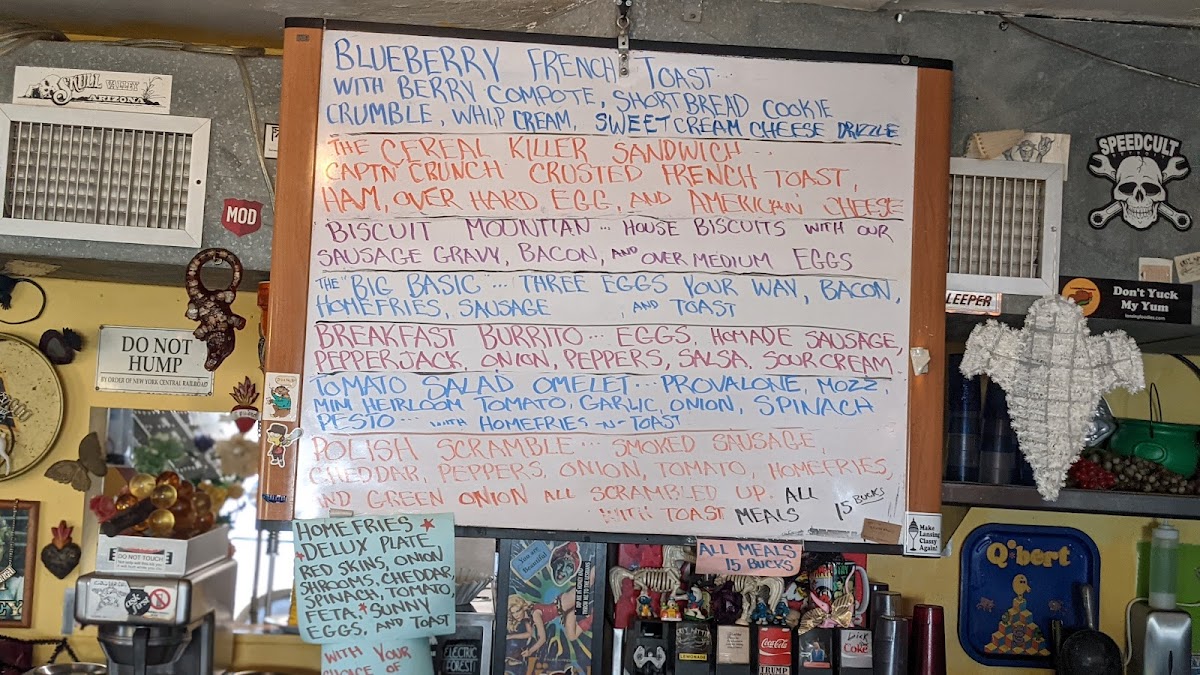 BLUEBERRY FRENCH TOAST...
WITH BERRY COMPOTE, SHORTBREAD COOKIE
CRUMBLE, WHIP CREAM, SWEET CREAM CHEESE DRIZZLE
THE CEREAL KILLER SANDWICH...
CAPTN'CRUNCH CRUSTED FRENCH TOAST,
HAM, OVER HARD EGG, AND AMERICAN CHEESE
BISCUIT MOUNTIAN... HOUSE BISCUITS WITH OUR
SAUSAGE GRAVY, BACON, AND OVER MEDIUM EGGS
THE "BIG BASIC"... THREE EGGS YOUR WAY, BACON,
HOMEFRIES, SAUSAGE , AND TOAST
BREAKFAST BURRITO... EGGS, HOMADE SAUSAGE,
PEPPERJACK, ONION, PEPPERS, SALSA, SOUR CREAM
TOMATO SALAD OMELET... PROVALONE, MOZZ,
MINI HEIRLOOM TOMATO, GARLIC, ONION, SPINACH
PESTO... WITH HOMEFRIES -N- TOAST
POLISH SCRAMBLE... SMOKED SAUSAGE,
CHEDDAR, PEPPERS, ONION, TOMATO, HOMEFRIES,
AND GREEN ONION ALL SCRAMBLED UP.
WITH TOAST
ALL MEALS 15 BUCKS
HOMEFRIES *
*DELUX PLATE
RED SKINS, ONION
SHROOMS, CHEDDAR,
SPINACH, TOMATO,
FETA, *SUNNY
EGGS, AND TOAST
WITH YOUR
CHOICE OF
ALL MEALS
15 BUCKS
SKULL VALLEY
ARIZONA
MOD
DO NOT
HUMP
BY ORDER OF NEW YORK CENTRAL RAILROAD
DO NOT TOUCH
ELECTRIC
FOREST
LEMONADE
Coca-Cola
TRUMP
Coke
SPEEDCULT
LEEPER
Don't Yuck
My Yum
Make
Lansing
Classy
Again!
Q*bert